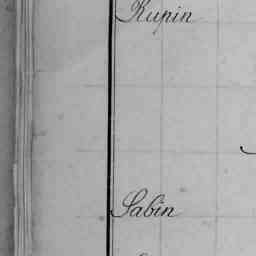 Rupin
Sabin